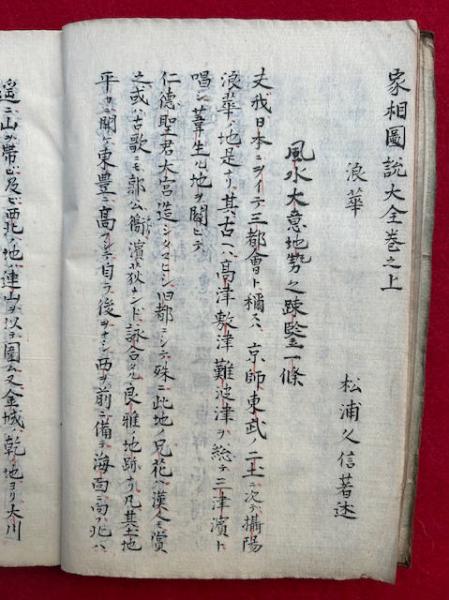 家相圖説大全巻之上
浪華
松浦久信著述
風水大意地勢之疎鑒一條
丈我日本ニヲイテ三都會ト稱スハ京師東武二土ニ次テ攝陽
浪華ノ地是ナリ其古ヘハ高津敷津難波津ヲ総テ三津濱ト
唱シ葦生ル地ヲ開ヒテ
仁德聖君大宮造シタマヒシ旧都ニシテ殊ニ此地ノ兄花ハ漢人モ賞
之或ハ古歌ニモ郭公衞濱荻ナンド詠合ル良雅ノ地跡ナリ凡其土地
平カニ開ケ東豊ニ高フシテ自ラ後ヲナシ西ヲ前ニ備ヘ海面ニ向フ北ハ
遥ニ山ヲ帯ビ及ビ西北ノ地ハ連山ヲ以テ圍ム又金城ノ乾ノ地ヨリ大川